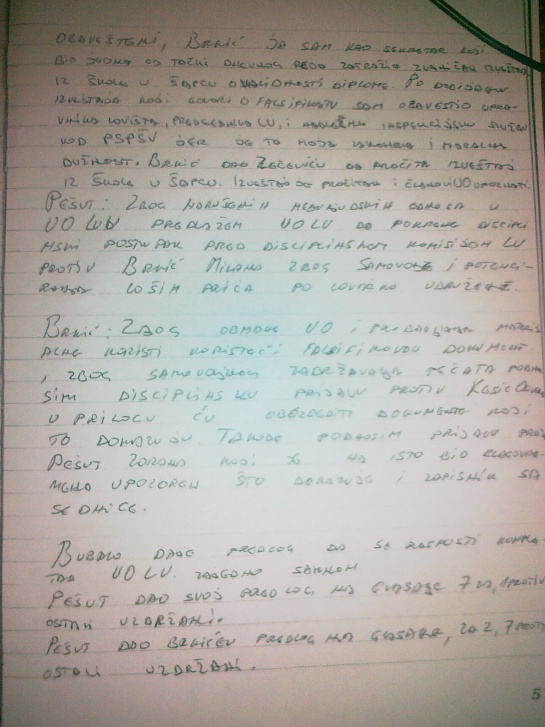 OBAVEŠTENI, BRKIĆ JA SAM KAO SEKRETAR KOJI
BIO JEDNA OD TAČKI DNEVNOG REDA ZATRAŽIO ZVANIČAN IZVEŠTAJ
IZ ŠKOLE U ŠAPCU O VALIDNOSTI DIPLOME. PO DOBIJENOM
IZVEŠTAJU KOJI GOVORI O FALSIFIKATU SAM OBAVESTIO UPRA-
VNIKA LOVIŠTA, PREDSEDNIKA LU, I NADLEŽNU INSPEKCIJSKU SLUŽBU
KOD PSPŠV JER JE TO MOJA ZAKONSKA I MORALNA
DUŽNOST. BRKIĆ DAO ZEČEVIĆU DA PROČITA IZVEŠTAJ
IZ ŠKOLE U ŠAPCU. IZVEŠTAJ JE PROČITAN I ČLANOVI UO UPOZNATI.
PEŠUT: ZBOG NARUŠENIH MEĐULJUDSKIH ODNOSA U
UO LU PREDLAŽEM UO LU DA POKRENE DISCIPLI
NSKI POSTUPAK PRED DISCIPLINSKOM KOMISIJOM LU
PROTIV BRKIĆ MILANA ZBOG SAMOVOLJE I POTENCI-
RANJA LOŠIH PRIČA PO LOVAČKOM UDRUŽENJU.
BRKIĆ: ZBOG OBMANE UO I PRIBAVLJANJA MATERI
JALNE KORISTI KORISTEĆI FALSIFIKOVAN DOKUMENT
, ZBOG SAMOVOLJNOG ZADRŽAVANJA PEČATA PODNO
SIM DISCIPLINSKU PRIJAVU PROTIV
U PRILOGU ĆU OBEZBEDITI DOKUMENTE KOJI
TO DOKAZUJU. TAKOĐE PODNOSIM PRIJAVU PROTIV
PEŠUT ZORANA KOJI JE NA ISTO BIO BLAGOVRE-
MENO UPOZOREN ŠTO DOKAZUJE I ZAPISNIK SA
SEDNICE.
BUBALO DAJE PREDLOG DA SE RASPUSTI KOMPLE-
TAN UO LU. ZAJEDNO SA
PEŠUT DAO SVOJ PREDLOG NA GLASANJE 7 ZA, 1 PROTIV
OSTALI UZDRŽANI.
PEŠUT DAO BRKIĆEV PREDLOG NA GLASANJE, ZA 2, 7 PROTIV
OSTALI UZDRŽANI.
5